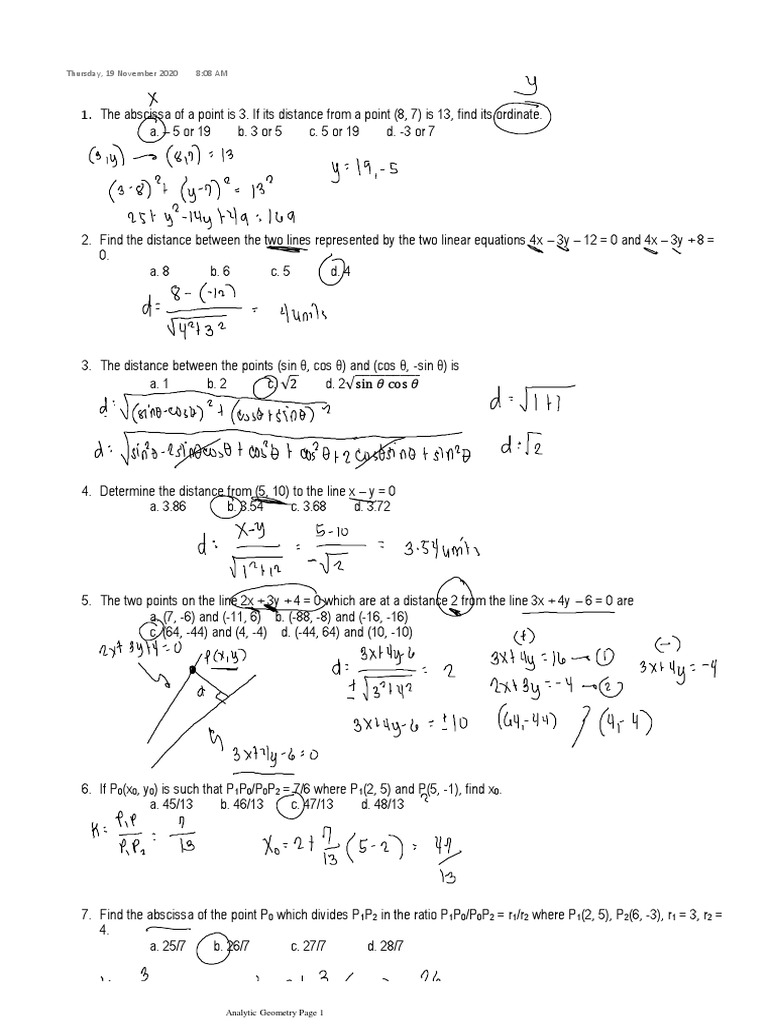 Thursday, 19 November 2020 8:08 AM
x
y
1. The abscissa of a point is 3. If its distance from a point (8, 7) is 13, find its ordinate.
a. – 5 or 19 b. 3 or 5 c. 5 or 19 d. -3 or 7
(3,y) → (8,7) = 13
y = 19, -5
(3-8)² + (y-7)² = 13²
25 + y² - 14y + 49 = 169
2. Find the distance between the two lines represented by the two linear equations 4x – 3y – 12 = 0 and 4x – 3y + 8 =
0.
a. 8 b. 6 c. 5 d. 4
d = 8 - (-12) / √4² + 3² = 4 units
3. The distance between the points (sin θ, cos θ) and (cos θ, -sin θ) is
a. 1 b. 2 c. √2 d. 2√sin θ cos θ
d: √(sinθ - cosθ)² + (cosθ + sinθ)²
d = √1+1
d: √sin²θ - 2sinθcosθ + cos²θ + cos²θ + 2cosθsinθ + sin²θ
d: √2
4. Determine the distance from (5, 10) to the line x – y = 0
a. 3.86 b. 3.54 c. 3.68 d. 3.72
d: x-y / √1² + 1² = 5-10 / -√2 = 3.54 units
5. The two points on the line 2x + 3y + 4 = 0 which are at a distance 2 from the line 3x + 4y – 6 = 0 are
a. (7, -6) and (-11, 6) b. (-88, -8) and (-16, -16)
c. (64, -44) and (4, -4) d. (-44, 64) and (10, -10)
2x + 3y + 4 = 0
P(x,y)
d
3x + 4y - 6 = 0
d = 3x + 4y - 6 / ± √3² + 4² = 2
3x + 4y - 6 = ± 10
(+)
3x + 4y = 16 → (1)
2x + 3y = -4 → (2)
(64, -44) / (4, -4)
(-)
3x + 4y = -4
6. If P₀(x₀, y₀) is such that P₁P₀/P₀P₂ = 7/6 where P₁(2, 5) and P₂(5, -1), find x₀.
a. 45/13 b. 46/13 c. 47/13 d. 48/13
K = P₁P / P₁P₂ = 7 / 13
x₀ = 2 + 7/13 (5 - 2) = 47/13
7. Find the abscissa of the point P₀ which divides P₁P₂ in the ratio P₁P₀/P₀P₂ = r₁/r₂ where P₁(2, 5), P₂(6, -3), r₁ = 3, r₂ =
4.
a. 25/7 b. 26/7 c. 27/7 d. 28/7
3
+ 3
26
Analytic Geometry Page 1